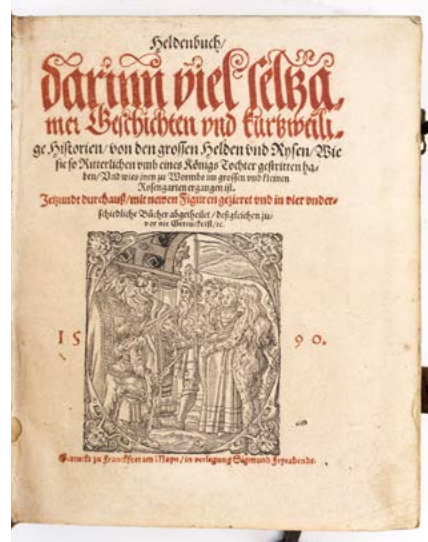 Heldenbuch/
darinn viel seltza,
mer Geschichten vnd kurtzweili,
ge Historien/von den grossen Helden vnd Rysen/Wie
sie so Ritterlichen vmb eines Königs Tochter gestritten ha,
ben/Vnd wies jnen zu Wormbs im grossen vnd kleinen
Rosengarten ergangen ist.
Jetzundt durchauß/mit newen Figuren gezieret vnd in vier vnder,
schiedliche Bücher abgetheilet/deßgleichen zu,
vor nie Getruckt ist/ꝛc.
15 90.
Getruckt zu Franckfurt am Mayn/in verlegung Sigmund Feyrabends.